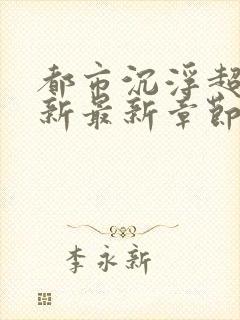 都市沉浮超
新最新章节
李永新